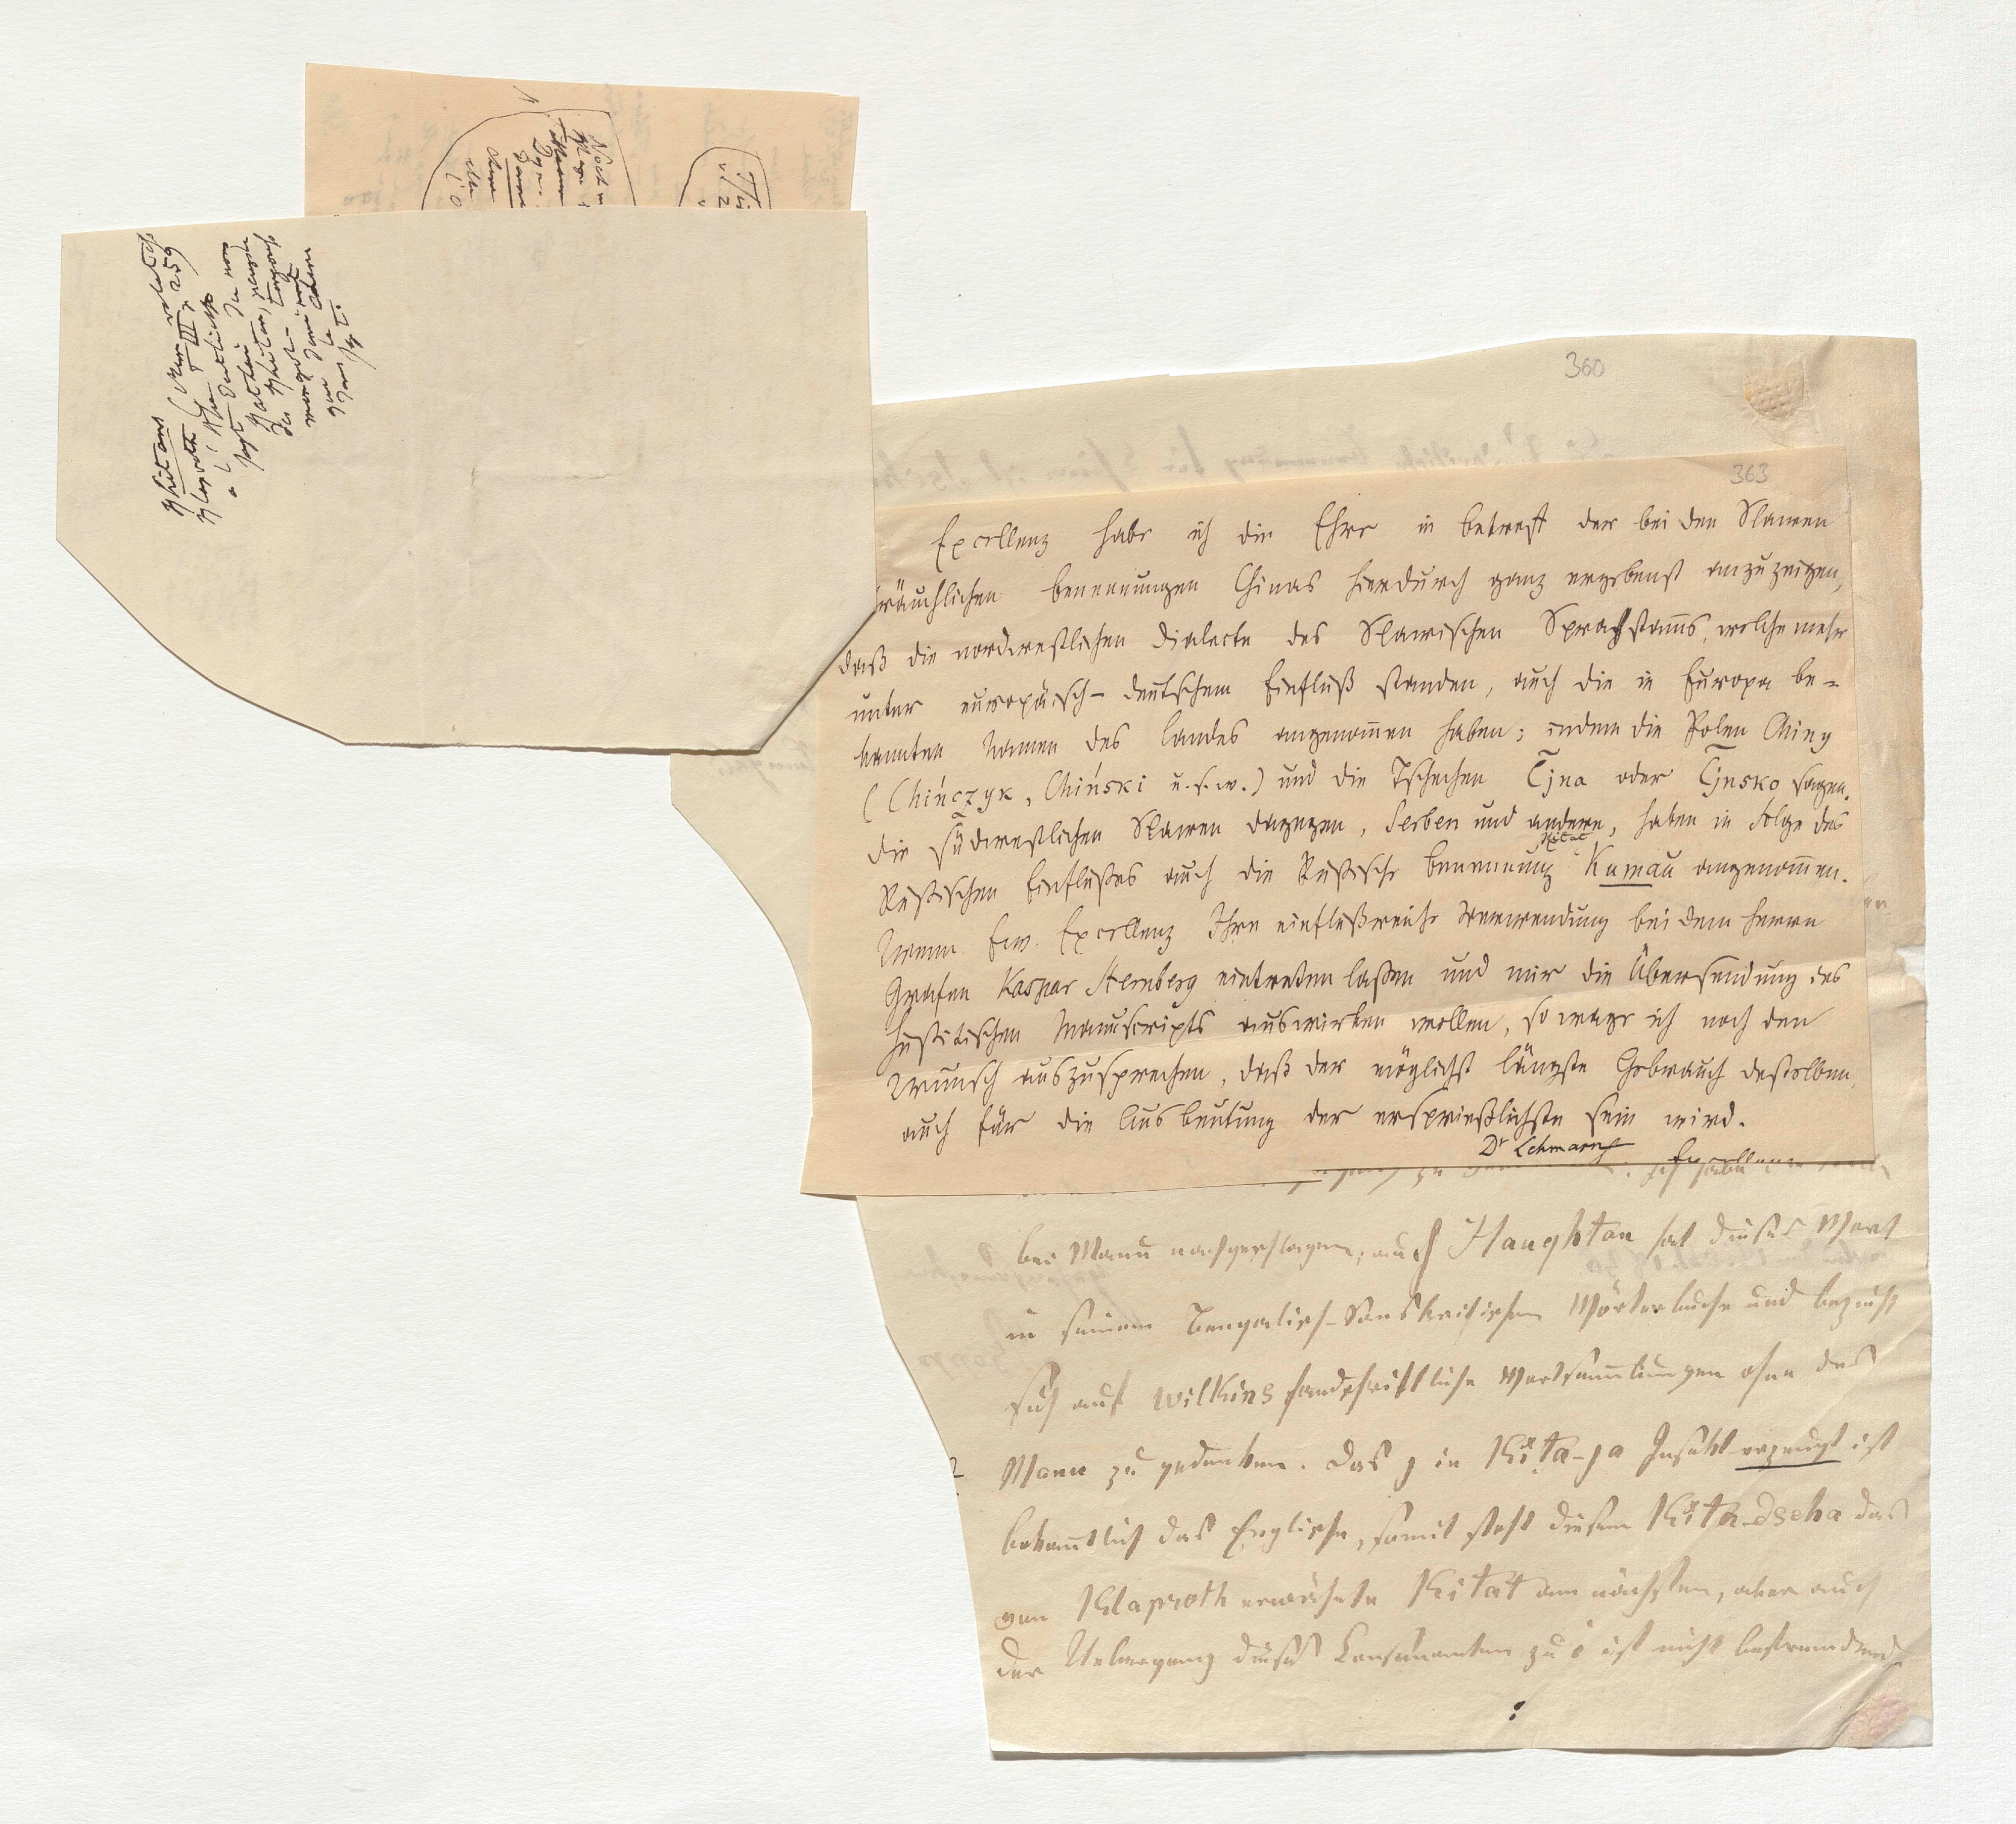 360
363
Excellenz habe ich die Ehre in betreff der bei den Slawen
bräuchlichen benennungen Chinas hierdurch ganz ergebenst anzuzeigen,
daß die nordwestlichen dialecte des Slawischen Sprachstam̅s, welche mehr
unter europäisch-deutschem Einfluß standen, auch die in Europa be-
kannten Namen des Landes angenom̅en haben; indem die Polen Chiny
(Chińczyk, Chiński u.s.w.) und die Tschechen C̃jna oder C̃jnsko sagen.
die südwestlichen Slawen dagegen, Serben und andere, haben in Folge des
Rußischen Einflußes auch die Rußische benennung Kumau angenom̅en.
Wenn Ew. Excellenz Ihre einflußreiche Verwendung bei dem Herrn
Grafen Kaspar Sternberg eintreten laßen und mir die Übersendung des
hußitischen Manuscripts auswirken wollen, so wage ich noch den
Wunsch auszusprechen, daß der möglichst längste Gebrauch desselben,
auch für die Ausbeutung der ersprießlichste sein wird.
Dr Lehmann
Excellenz
bei Manu nachgeschlagen; auch Haughton hat dieses Wort
in seinem Bengalisch-Sanskritischen Wörterbuche und bezieht
sich auf Wilkins handschriftliche Wortsam̅lungen ohne des
Manu zu gedenken. Das j in Kīta-ja Insekt-erzeugt ist
bekan̅tlich das Englische, somit steht diesem Kīta-dscha das
von Klaproth erwähnte Kitat am nächsten, aber auch
der Uebergang dieses Consonanten zu i ist nicht befremdend
Khitans
Klaproth (Mem relatifs
a l'Asie T III p 259
sagt deutlich